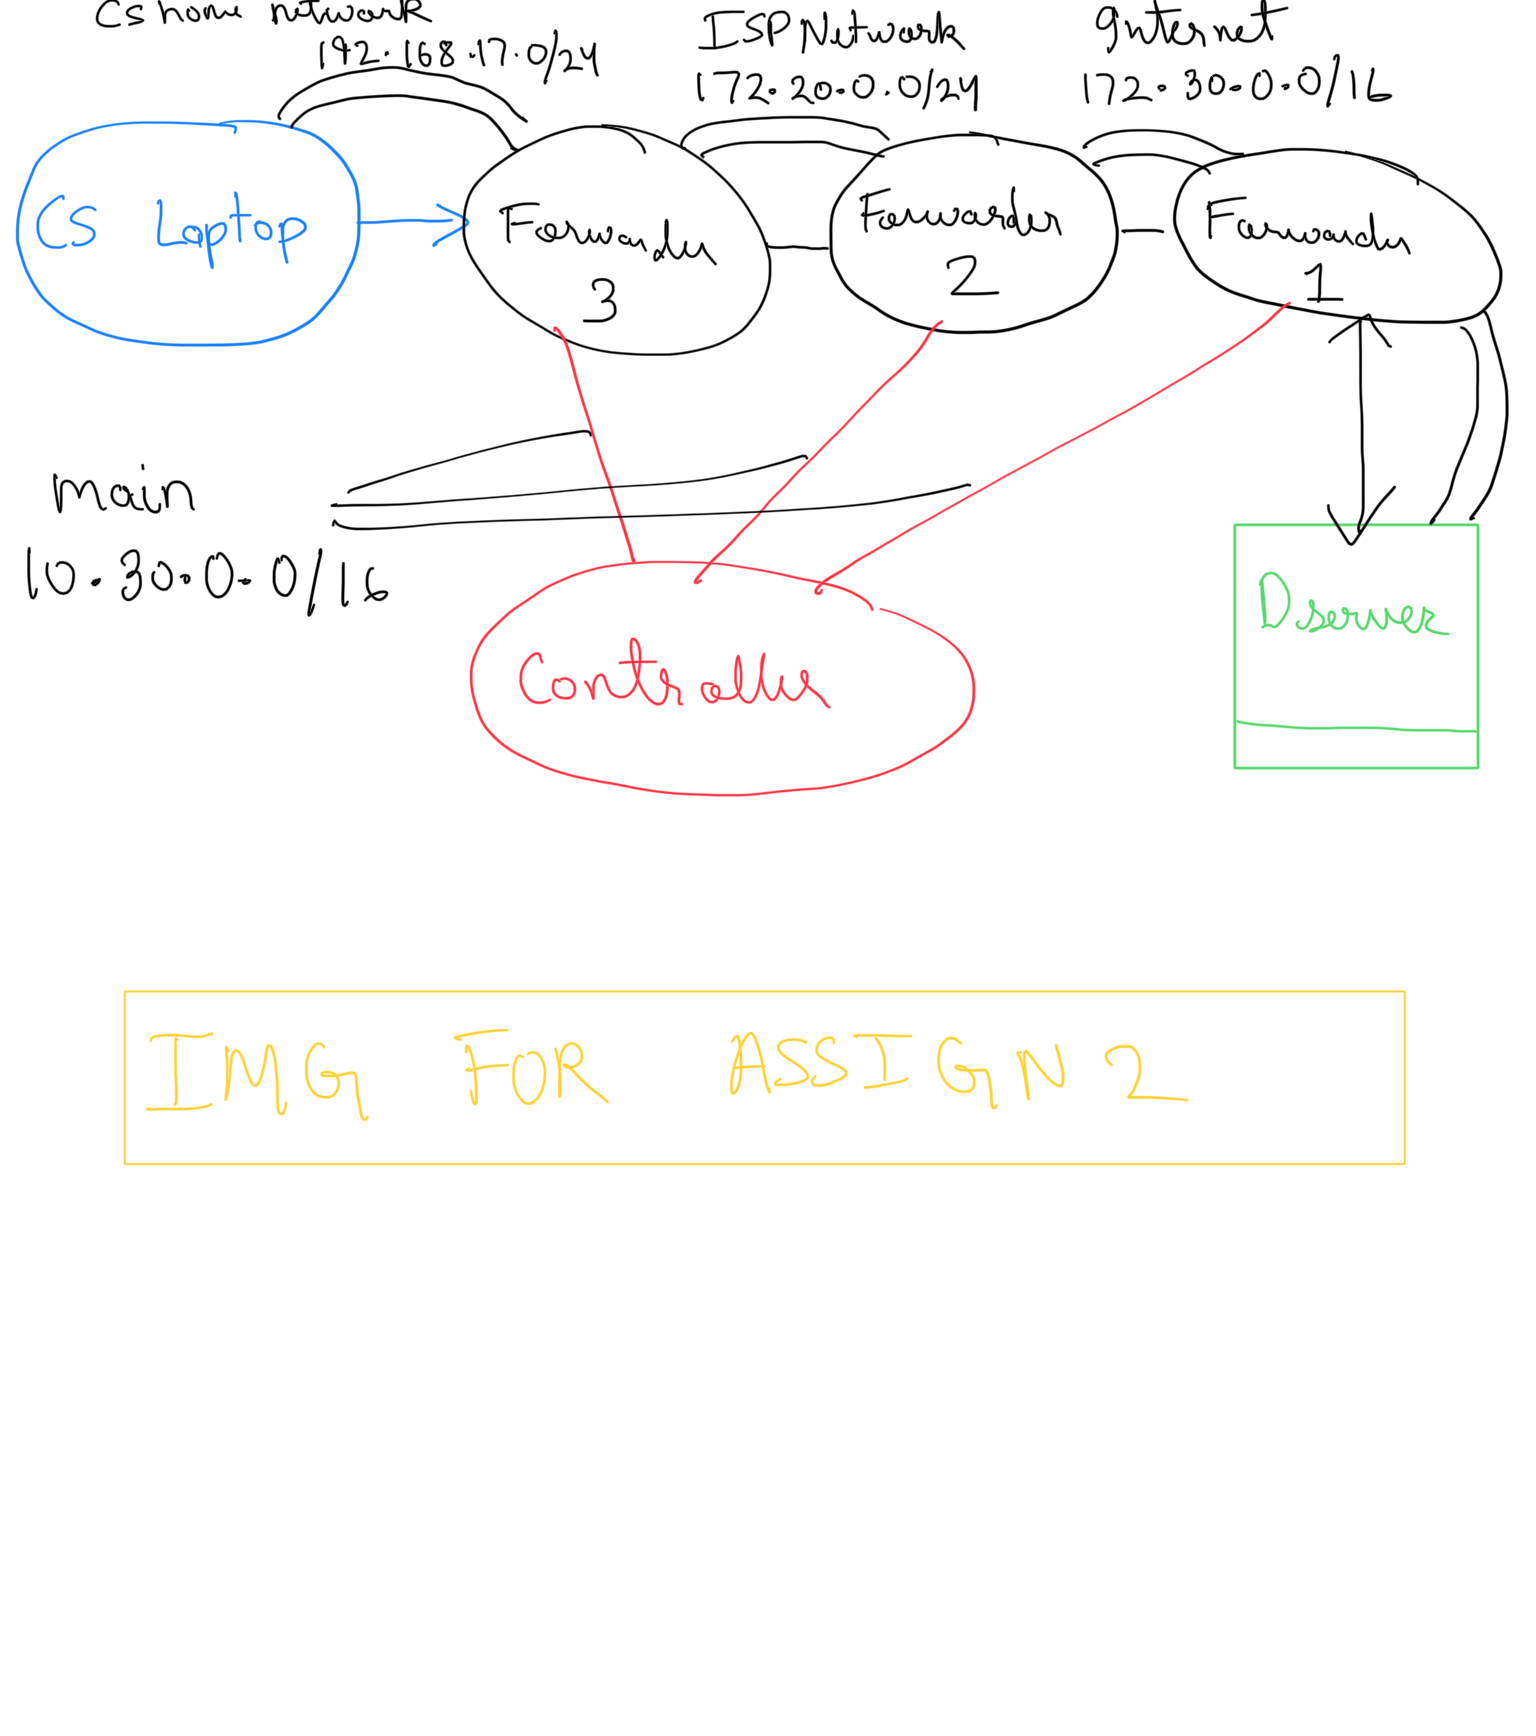 Cs home network
192.168.17.0/24
ISP Network
172.20.0.0/24
Internet
172.30.0.0/16
CS Laptop
Forwarder
3
Forwarder
2
Forwarder
1
main
10.30.0.0/16
Controller
D server
IMG FOR ASSIGN 2